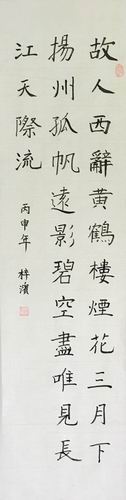 故人西辭黃鶴樓煙花三月下
揚州孤帆遠影碧空盡唯見長
江天際流
丙申年 梓濱